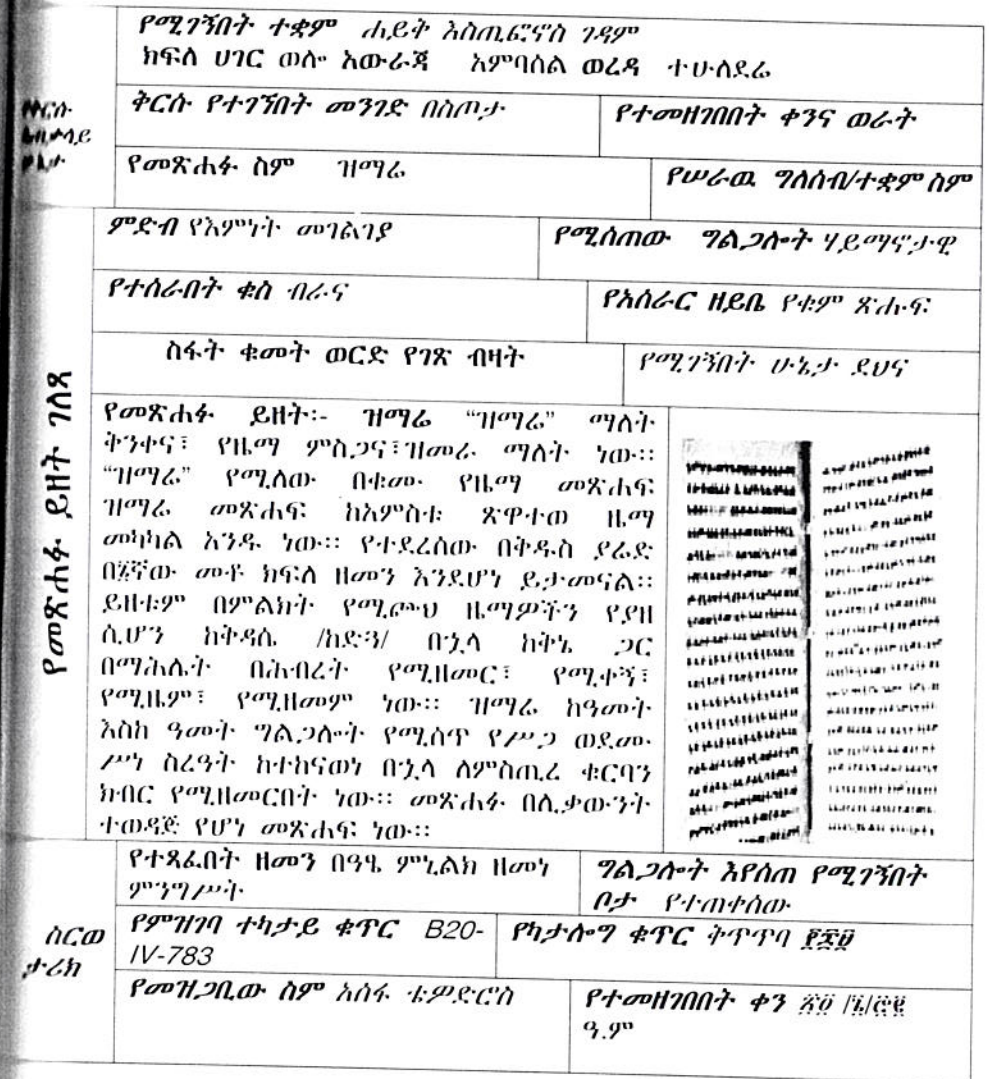 የሚገኝበት ተቋም ሐይቅ እስጢፎኖስ ገዳም
ክፍለ ሀገር ወሎ አውራጃ አምባሰል ወረዳ ተሁለደሬ
ቅርሱ የተገኘበት መንገድ በስጦታ
የተመዘገበበት ቀንና ወራት
የመጽሐፉ ስም ዝማሬ
የሠራዉ ግለሰብ/ተቋም ስም
የመጽሐፉ ይዘት ገለጻ
ምድብ የእምነት መገልገያ
የሚሰጠው ግልጋሎት ሃይማኖታዊ
የተሰራበት ቁስ ብራና
የአሰራር ዘይቤ የቁም ጽሑፍ
ስፋት ቁመት ወርድ የገጽ ብዛት
የሚገኝበት ሁኔታ ደህና
የመጽሐፉ ይዘት:- ዝማሬ “ዝማሬ” ማለት
ቅንቀና፣ የዜማ ምስጋና፣ዝመራ ማለት ነው።
“ዝማሬ” የሚለው በቁሙ የዜማ መጽሐፍ
ዝማሬ መጽሐፍ ከአምስቱ ጽዋተወ ዜማ
መካካል አንዱ ነው። የተደረሰው በቅዱስ ያሬድ
በ፮ኛው መቶ ክፍለ ዘመን እንደሆነ ይታመናል።
ይዘቱም በምልክት የሚጮህ ዜማዎችን የያዘ
ሲሆን ከቅዳሴ /ከድጓ/ በኋላ ከቅኔ ጋር
በማሕሌት በሕብረት የሚዘመር፣ የሚቀኝ፣
የሚዜም፣ የሚዘመም ነው። ዝማሬ ከዓመት
እስከ ዓመት ግልጋሎት የሚሰጥ የሥጋ ወደሙ
ሥነ ስረዓት ከተከናወነ በኋላ ለምስጢረ ቁርባን
ክብር የሚዘመርበት ነው። መጽሐፉ በሊቃውንት
ተወዳጅ የሆነ መጽሐፍ ነው።
ስርወ
ታሪክ
የተጻፈበት ዘመን በዓፄ ምኒልክ ዘመነ
ምንግሥት
ግልጋሎት እየሰጠ የሚገኝበት
ቦታ የተጠቀሰው
የምዝገባ ተካታይ ቁጥር B20-
IV-783
የካታሎግ ቁጥር ቅጥጥባ
የመዝጋቢው ስም አሰፋ ቴዎድሮስ
የተመዘገበበት ቀን
ዓ.ም